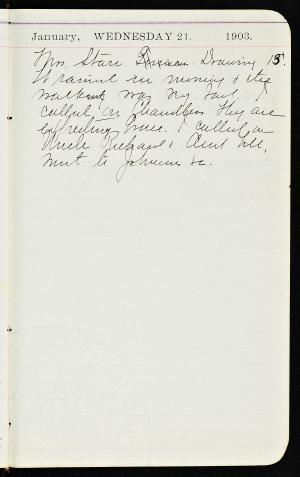 January, WEDNESDAY 21. 1903.
Mrs. Starr Drawing 15.
It rained in morning & the
walking was very bad. I
called on Chandlers. They are
expecting Grace. I called on
Uncle Richard & Aunt
Went to &c.